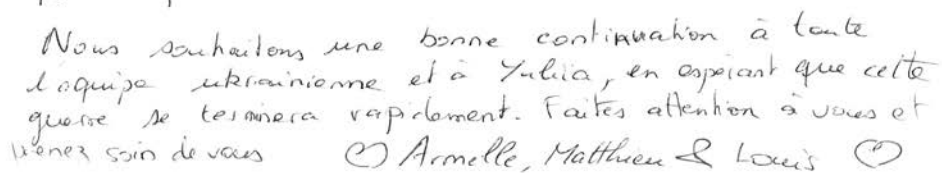 Nous souhaitons une bonne continuation à toute
l'équipe ukrainienne et à Yuliia, en espérant que cette
guerre se terminera rapidement. Faites attention à vous et
prenez soin de vous ♡ Armelle, Matthieu & Louis ♡